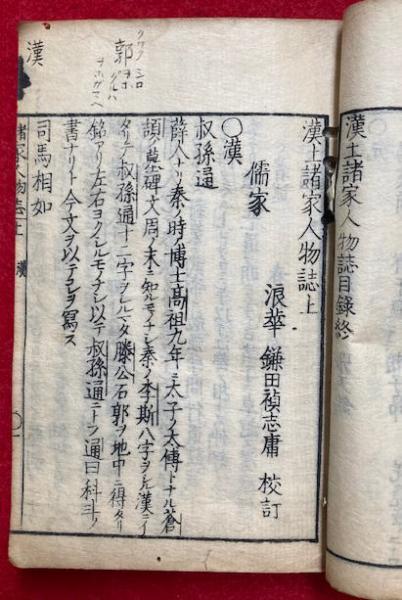 漢土諸家人物誌目録終
漢土諸家人物誌上
浪華 鎌田禎志庸 校訂
儒家
○漢
叔孫通
薛人ナリ秦ノ時ノ博士高祖九年ニ太子ノ太傅トナル蒼
頡ノ墓碑文周ノ末ニ知ルモノナシ秦ノ李斯八字ヲシル漢ニイ
タリテ叔孫通十二字ヲシルマタ滕公石郭ヲ地中ニ得タリ
銘アリ左右ヨクシルモノナシ以テ叔孫通ニトフ通曰科斗ノ
書ナリト今文ヲ以テコレヲ寫ス
司馬相如
諸家人物志上 漢
漢
郭